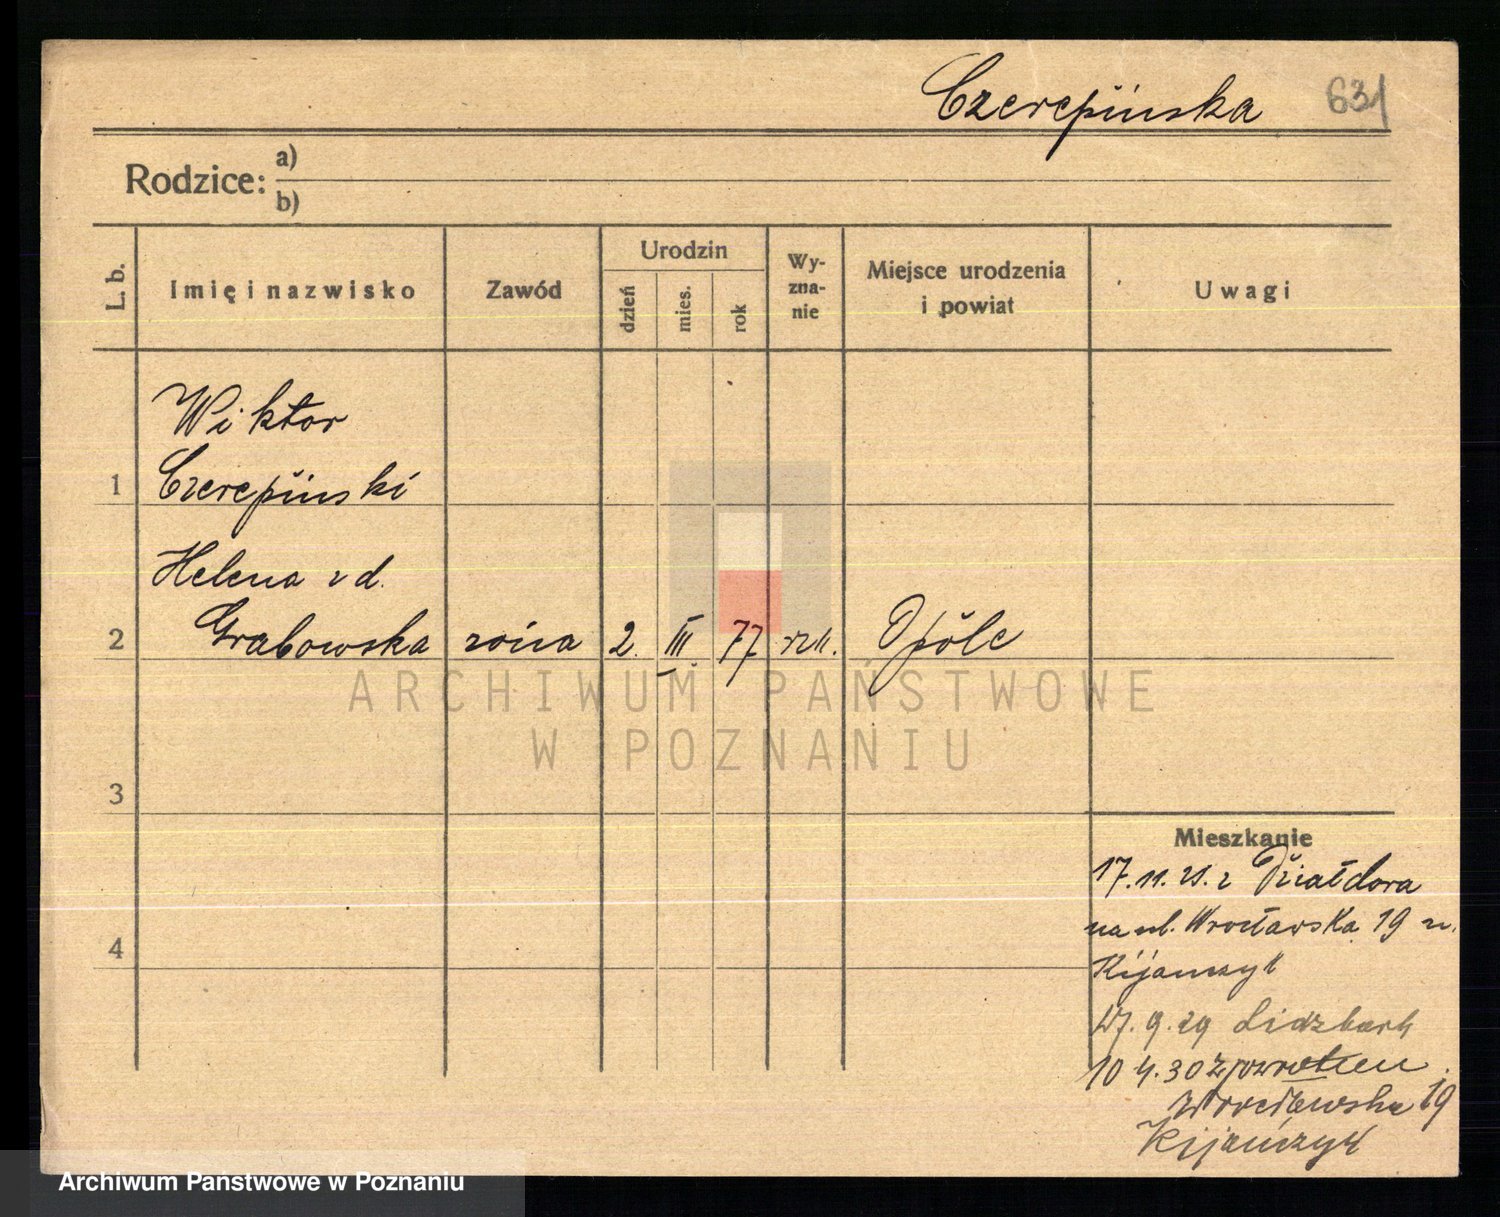 Czerepińska 631
Rodzice: a)
b)
L. b.
Imię i nazwisko
Zawód
Urodzin
dzień
mies.
rok
Wy-
zna-
nie
Miejsce urodzenia
i powiat
Uwagi
Wiktor
1 Czerepiński
Helena z d.
2 Grabowska żona 2. III 77 rzk. Opole
3
4
Mieszkanie
17.11.21. z Działdowa
na ul. Wrocławska 19 u.
Kijańczyk
27.9.29 Lidzbark
10 4.30 z powrotem
Wrocławska 19
Kijańczyk
ARCHIWUM PAŃSTWOWE
W POZNANIU
Archiwum Państwowe w Poznaniu